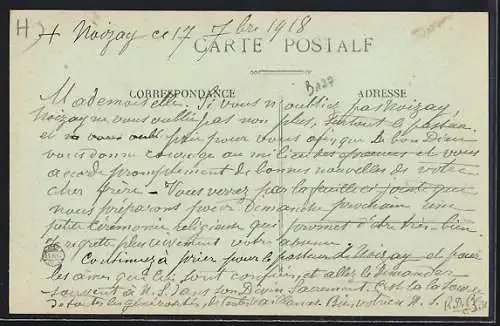 H) + Noizay ce 17 7bre 1918
CARTE POSTALE
CORRESPONDANCE ADRESSE
Mademoiselle. Si vous n'oubliez pas Noizay,
Noizay ne vous oublie pas non plus. Surtout le pasteur
et prie pour vous afin que le bon Dieu
vous donne courage au milieu des épreuves et vous
accorde promptement de bonnes nouvelles de votre
cher frère - Vous verrez par la feuille ci jointe que
nous préparons pour Dimanche prochain une
petite cérémonie religieuse qui promet d'être très bien.
Je regrette plus vivement votre absence.
Continuez à prier pour le pasteur de Noizay et pour
les âmes qui lui sont confiées et allez le demander
souvent à N. S. dans son Divin Sacrement. C'est là la source
de toutes les générosités de toutes vaillances. Bien votre en N. S.